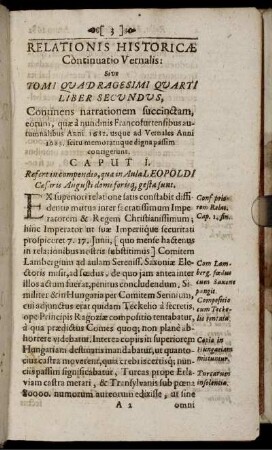 [ 3 ]
RELATIONIS HISTORICÆ
Continuatio Vernalis:
Sive
TOMI QUADRAGESIMI QUARTI
LIBER SECUNDUS,
Continens narrationem succinctam,
eorum, quæ à nundinis Francofurtensibus au-
tumnalibus Anni 1682. usque ad Vernales Anni
1683. scitu memoratuque digna passim
contigerunt.
CAPUT I.
Refert in compendio, quæ in Aula LEOPOLDI
Cæsaris Augusti domi forisq́, gesta sunt.
EX superiori relatione satis constabit diffi-
dentiæ motus inter Sacratissimum Impe-
ratorem & Regem Christianissimum;
hinc Imperator ut suæ Imperiiq́ue securitati
prospiceret 7. 17. Junii, [quo mense hactenus
in relationibus nostris substitimus] Comitem
Lambergium ad aulam Sereniss. Saxoniæ Ele-
ctoris misit, ad fœdus, de quo jam antea inter
illos actum fuerat, penitus concludendum, Si-
militer & in Hungariam Comitem Seroium,
cui adjunctus erat quidam Teckelio à secretis,
ope Principis Ragoziæ compositio tentabatur,
à qua prædictus Comes quoq; non planè ab-
horrere videbatur. Interea copiis in superiorem
Hungariam destinatis mandabatur, ut quanto-
cius castra moverent, quia crebri incertiq́; nun-
cii passim significabatur, Turcas prope Erla-
viam castra metari, & Transylvanis sub pœna
80000. numorum aureorum edixisse, ut sine
A 2 omni
Conf. priorem Relat. Cap. 1. fin.
Com Lam-
berg. fœdus
cum Saxone
pangit.
Compositio
cum Tecke-
lio tentata.
Copiæ in
Hungariam
mittuntur.
Turcarum
insolentia.